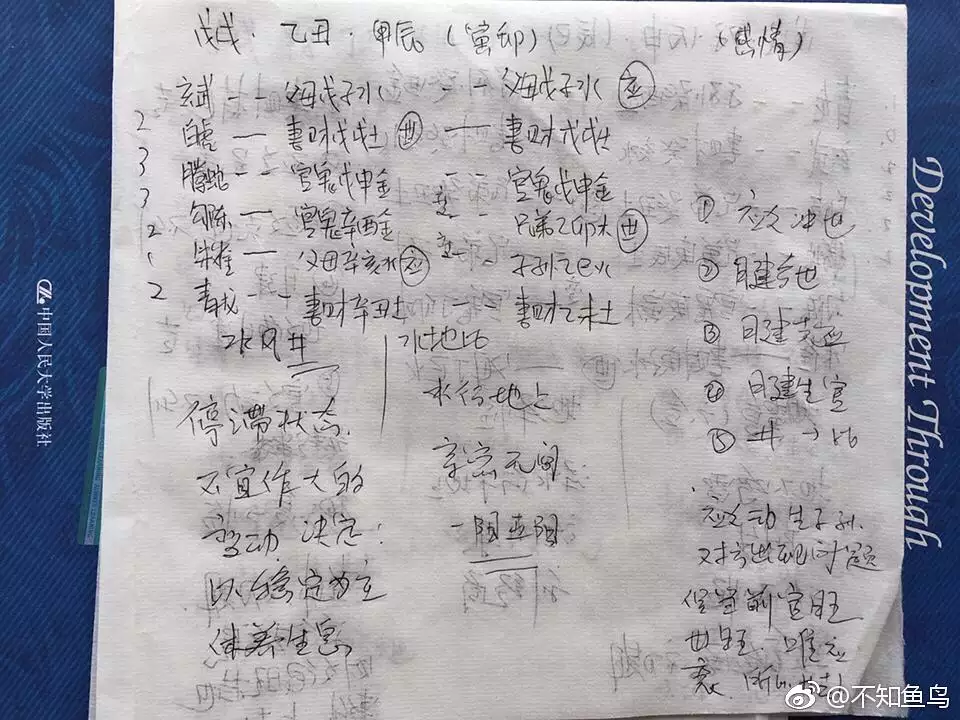 戊戌·乙丑·甲辰(寅卯)(感情)
玄武 - - 父母戊子水 - - 父母戊子水 应
2 白虎 — 妻财戊戌土 世 — 妻财戊戌土
3 腾蛇 - - 官鬼戊申金 - - 官鬼戊申金
3 勾陈 — 官鬼辛酉金 - - 兄弟乙卯木 世
2 朱雀 — 父母辛亥水 应 - - 子孙乙巳火
1
2 青龙 - - 妻财辛丑土 - - 妻财乙未土
水风井
水地比
停滞状态
不宜作大的
变动 决定:
以稳定为主
休养生息
水行地上
亲密无间
一阳五阴
① 应爻冲世
② 日建合世
③ 日建克应
④ 日建生官
⑤ 井→比
应爻动生子孙
对方出现问题
但当前官旺
世旺 唯应
衰
中国人民大学出版社
Development Through
@不知鱼鸟